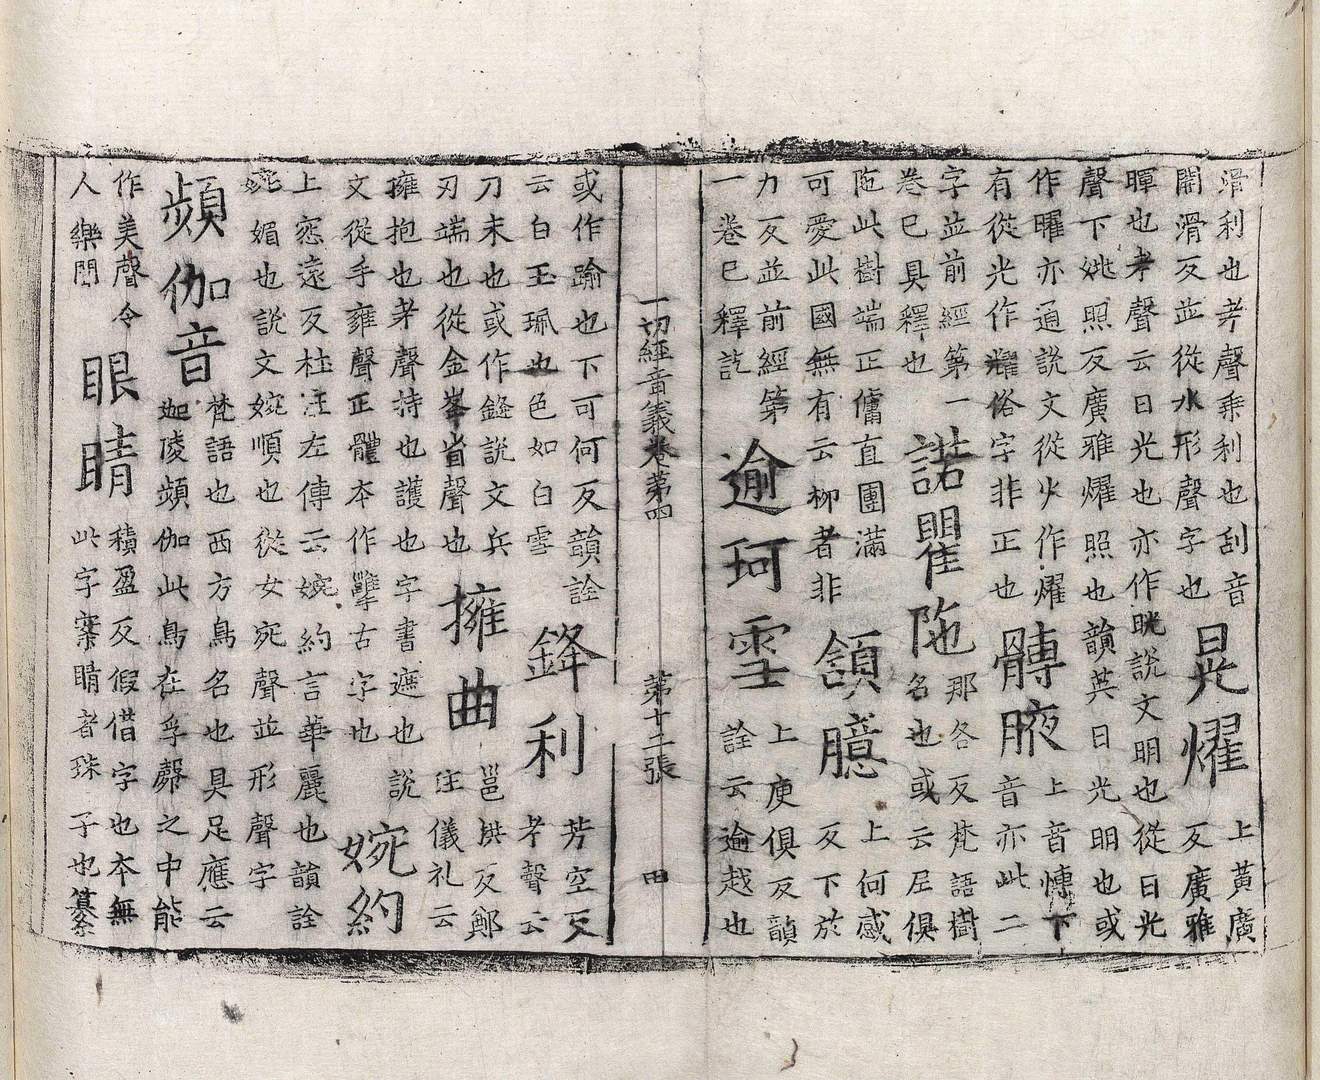 滑利也考聲乗利也刮音
關滑反並從水形聲字也
晃燿
上黃廣
反廣雅
暉也考聲云日光也亦作晄說文明也從日光
聲下姚照反廣雅燿照也韻英日光明也或
作曜亦通說文從火作燿
有從光作耀俗字非正也
髆腋
上音博下
音亦此二
字並前經第一
卷已具釋也
諾瞿陁
那各反梵語樹
名也或云尼俱
陁此樹端正傭直團滿
可愛此國無有云柳者非
頷臆
上何感
反下於
力反並前經第
一卷已釋訖
逾珂雪
上庾俱反韻
詮云逾越也
一切經音義卷第四 第十二張 田
或作踰也下可何反韻詮
云白玉珮也色如白雪
鋒利
芳空反
考聲云
刀末也或作鏠說文兵
刃端也從金峯省聲也
擁曲
邕拱反鄭
注儀礼云
擁抱也考聲持也護也字書遮也說
文從手雍聲正體本作古字也
婉約
上寃遠反杜注左傳云婉約言華麗也韻詮
婉媚也說文婉順也從女宛聲並形聲字
頻伽音
梵語也西方鳥名也具足應云
迦陵頻伽此鳥在孚㲉之中能
作美聲令
人樂聞
眼睛
積盈反假借字也本無
此字案睛者珠子也纂